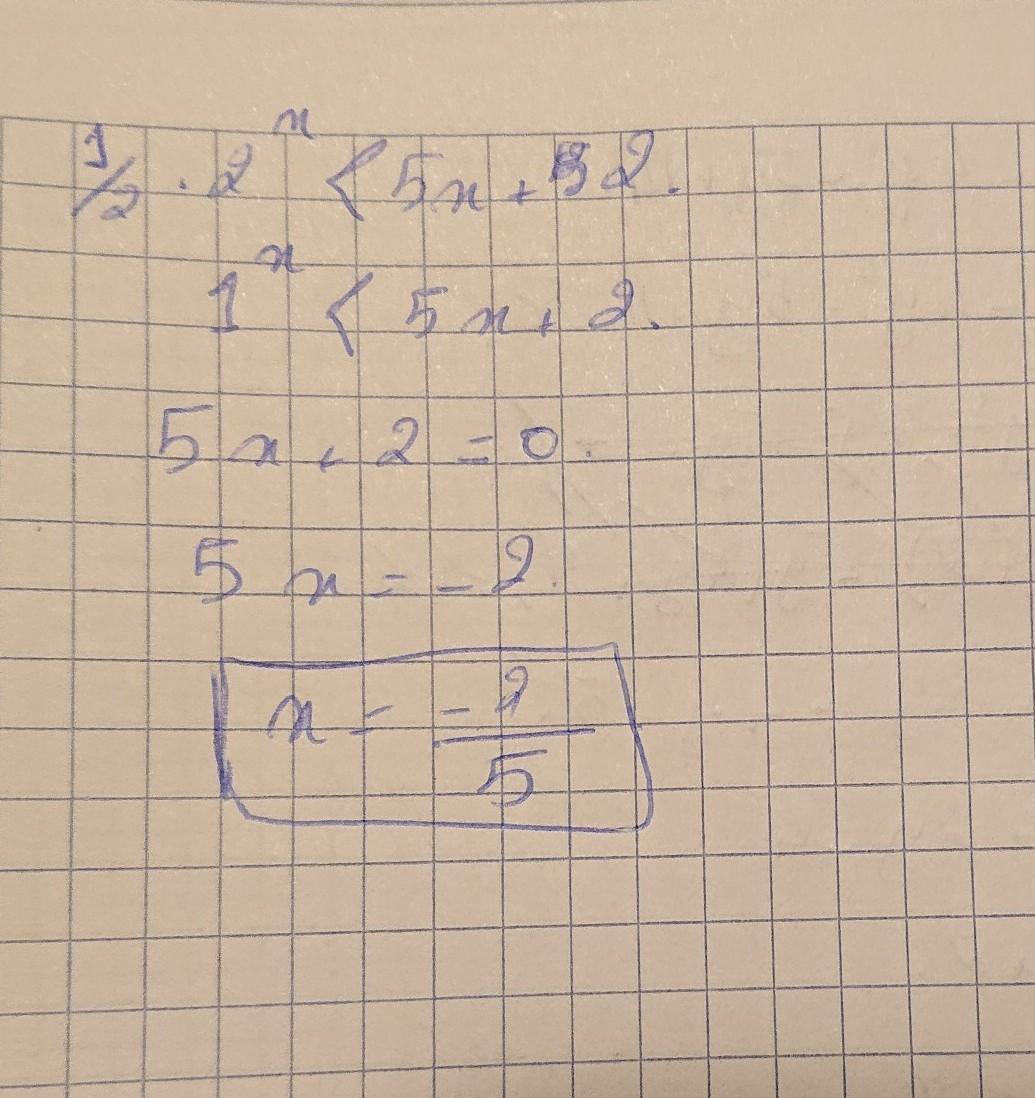 1/2 · 2^x < 5x + 2.
1^x < 5x + 2.
5x + 2 = 0.
5x = -2.
x = -2/5